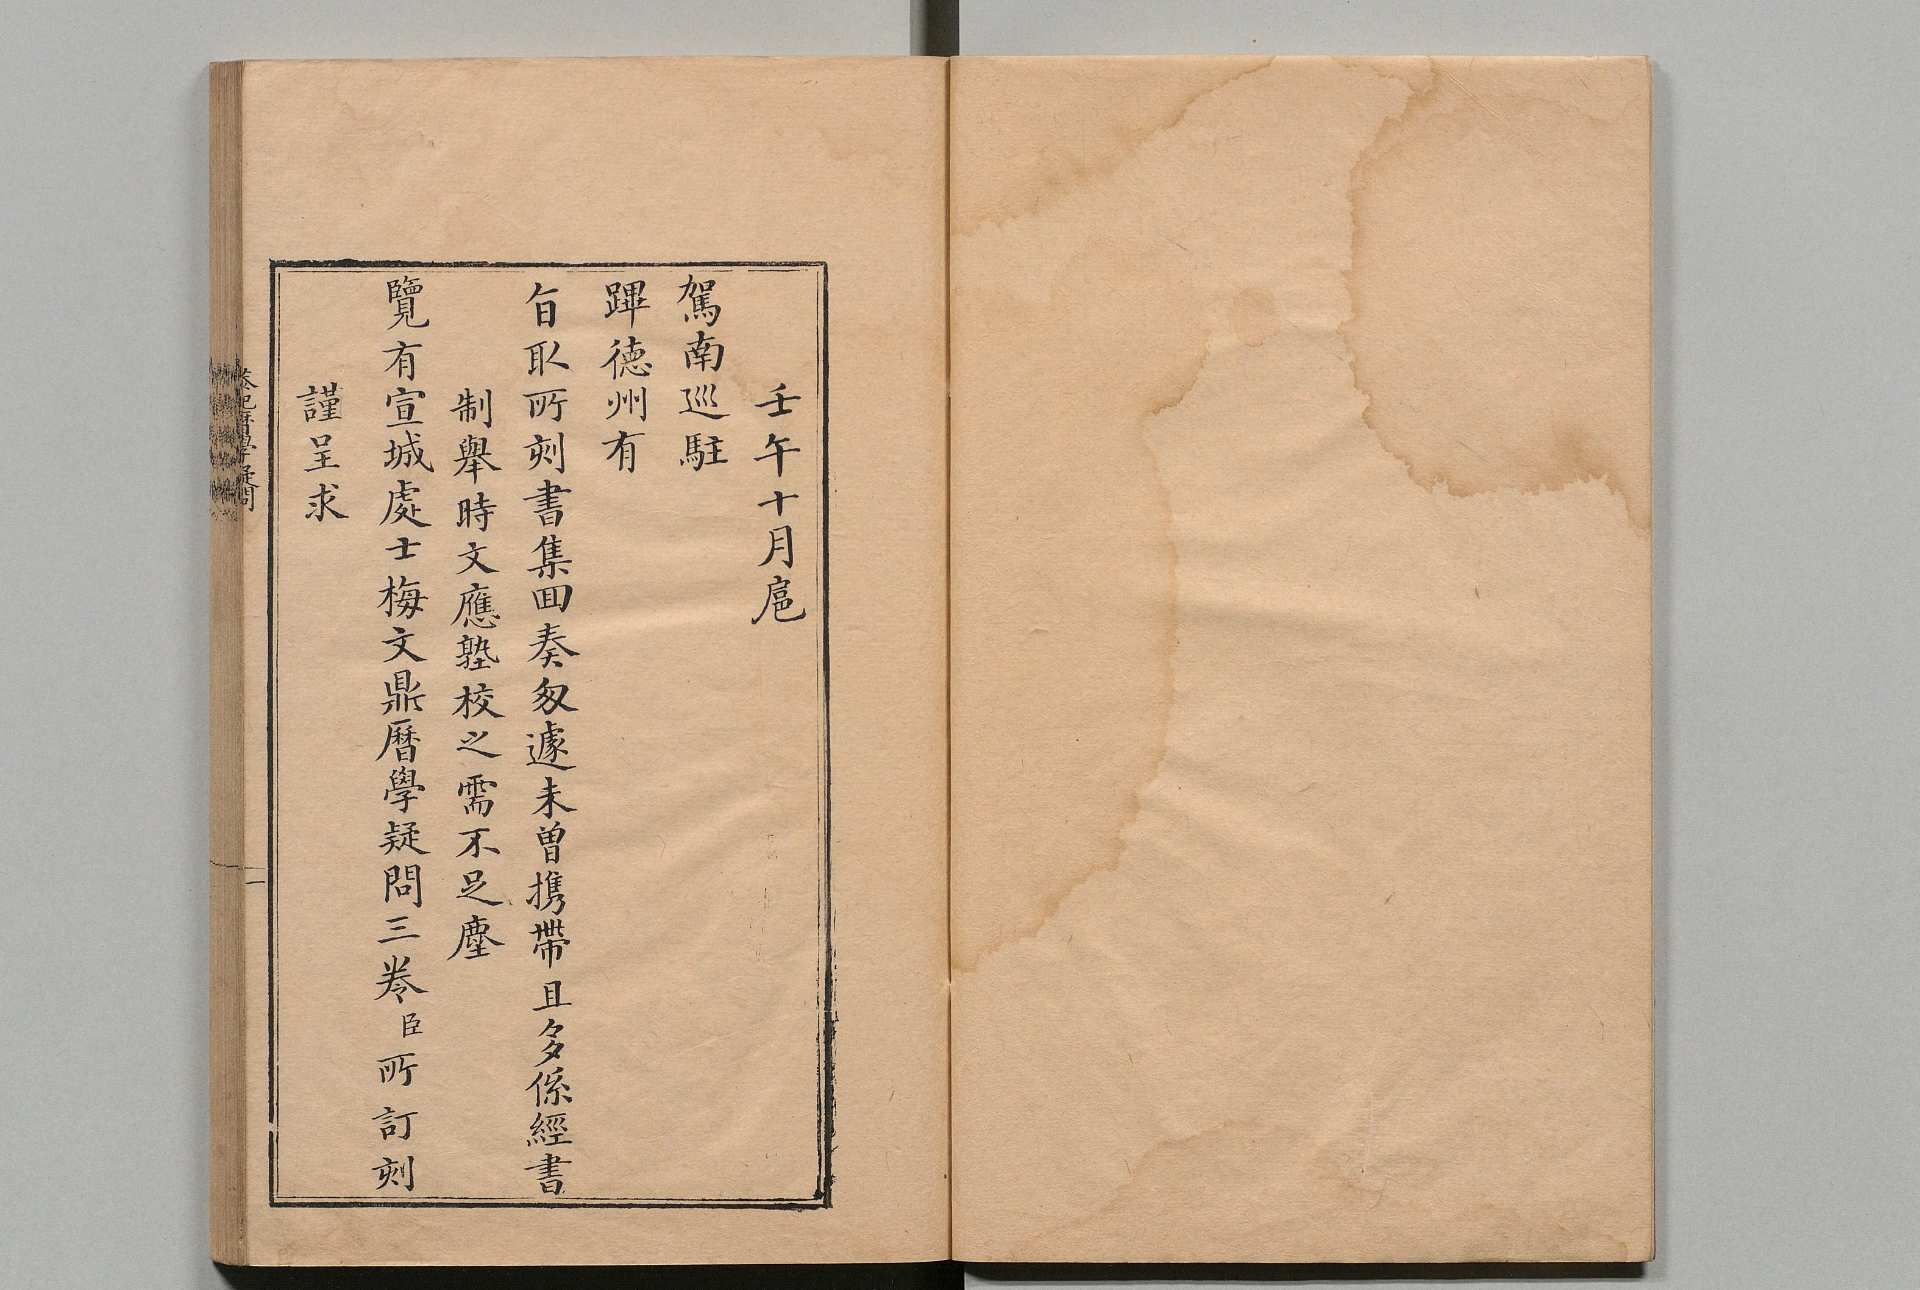 壬午十月扈
駕南巡駐
蹕德州有
旨取所刻書集回奏匆遽未曾携帶且多係經書
制舉時文應塾校之需不足塵
覽有宣城處士梅文鼎曆學疑問三卷臣所訂刻
謹呈求
恭記曆學疑問
一